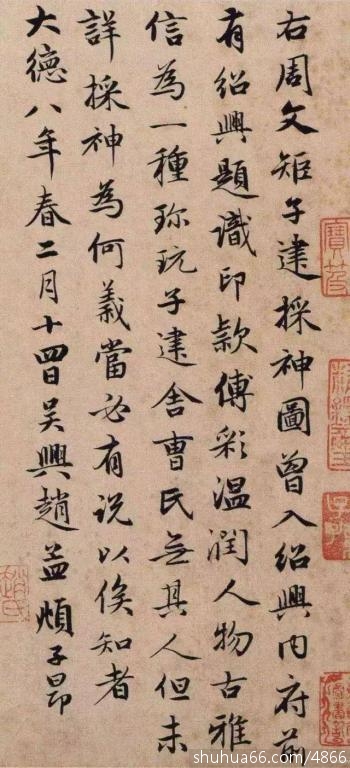 右周文矩子建採神圖曾入紹興内府前
有紹興題識印款傅彩温潤人物古雅
信為一種珎玩子建舍曹氏無其人但未
詳採神為何義當必有説以俟知者
大德八年春二月十四日吴興趙孟頫子昂
shuhua66.com/4866